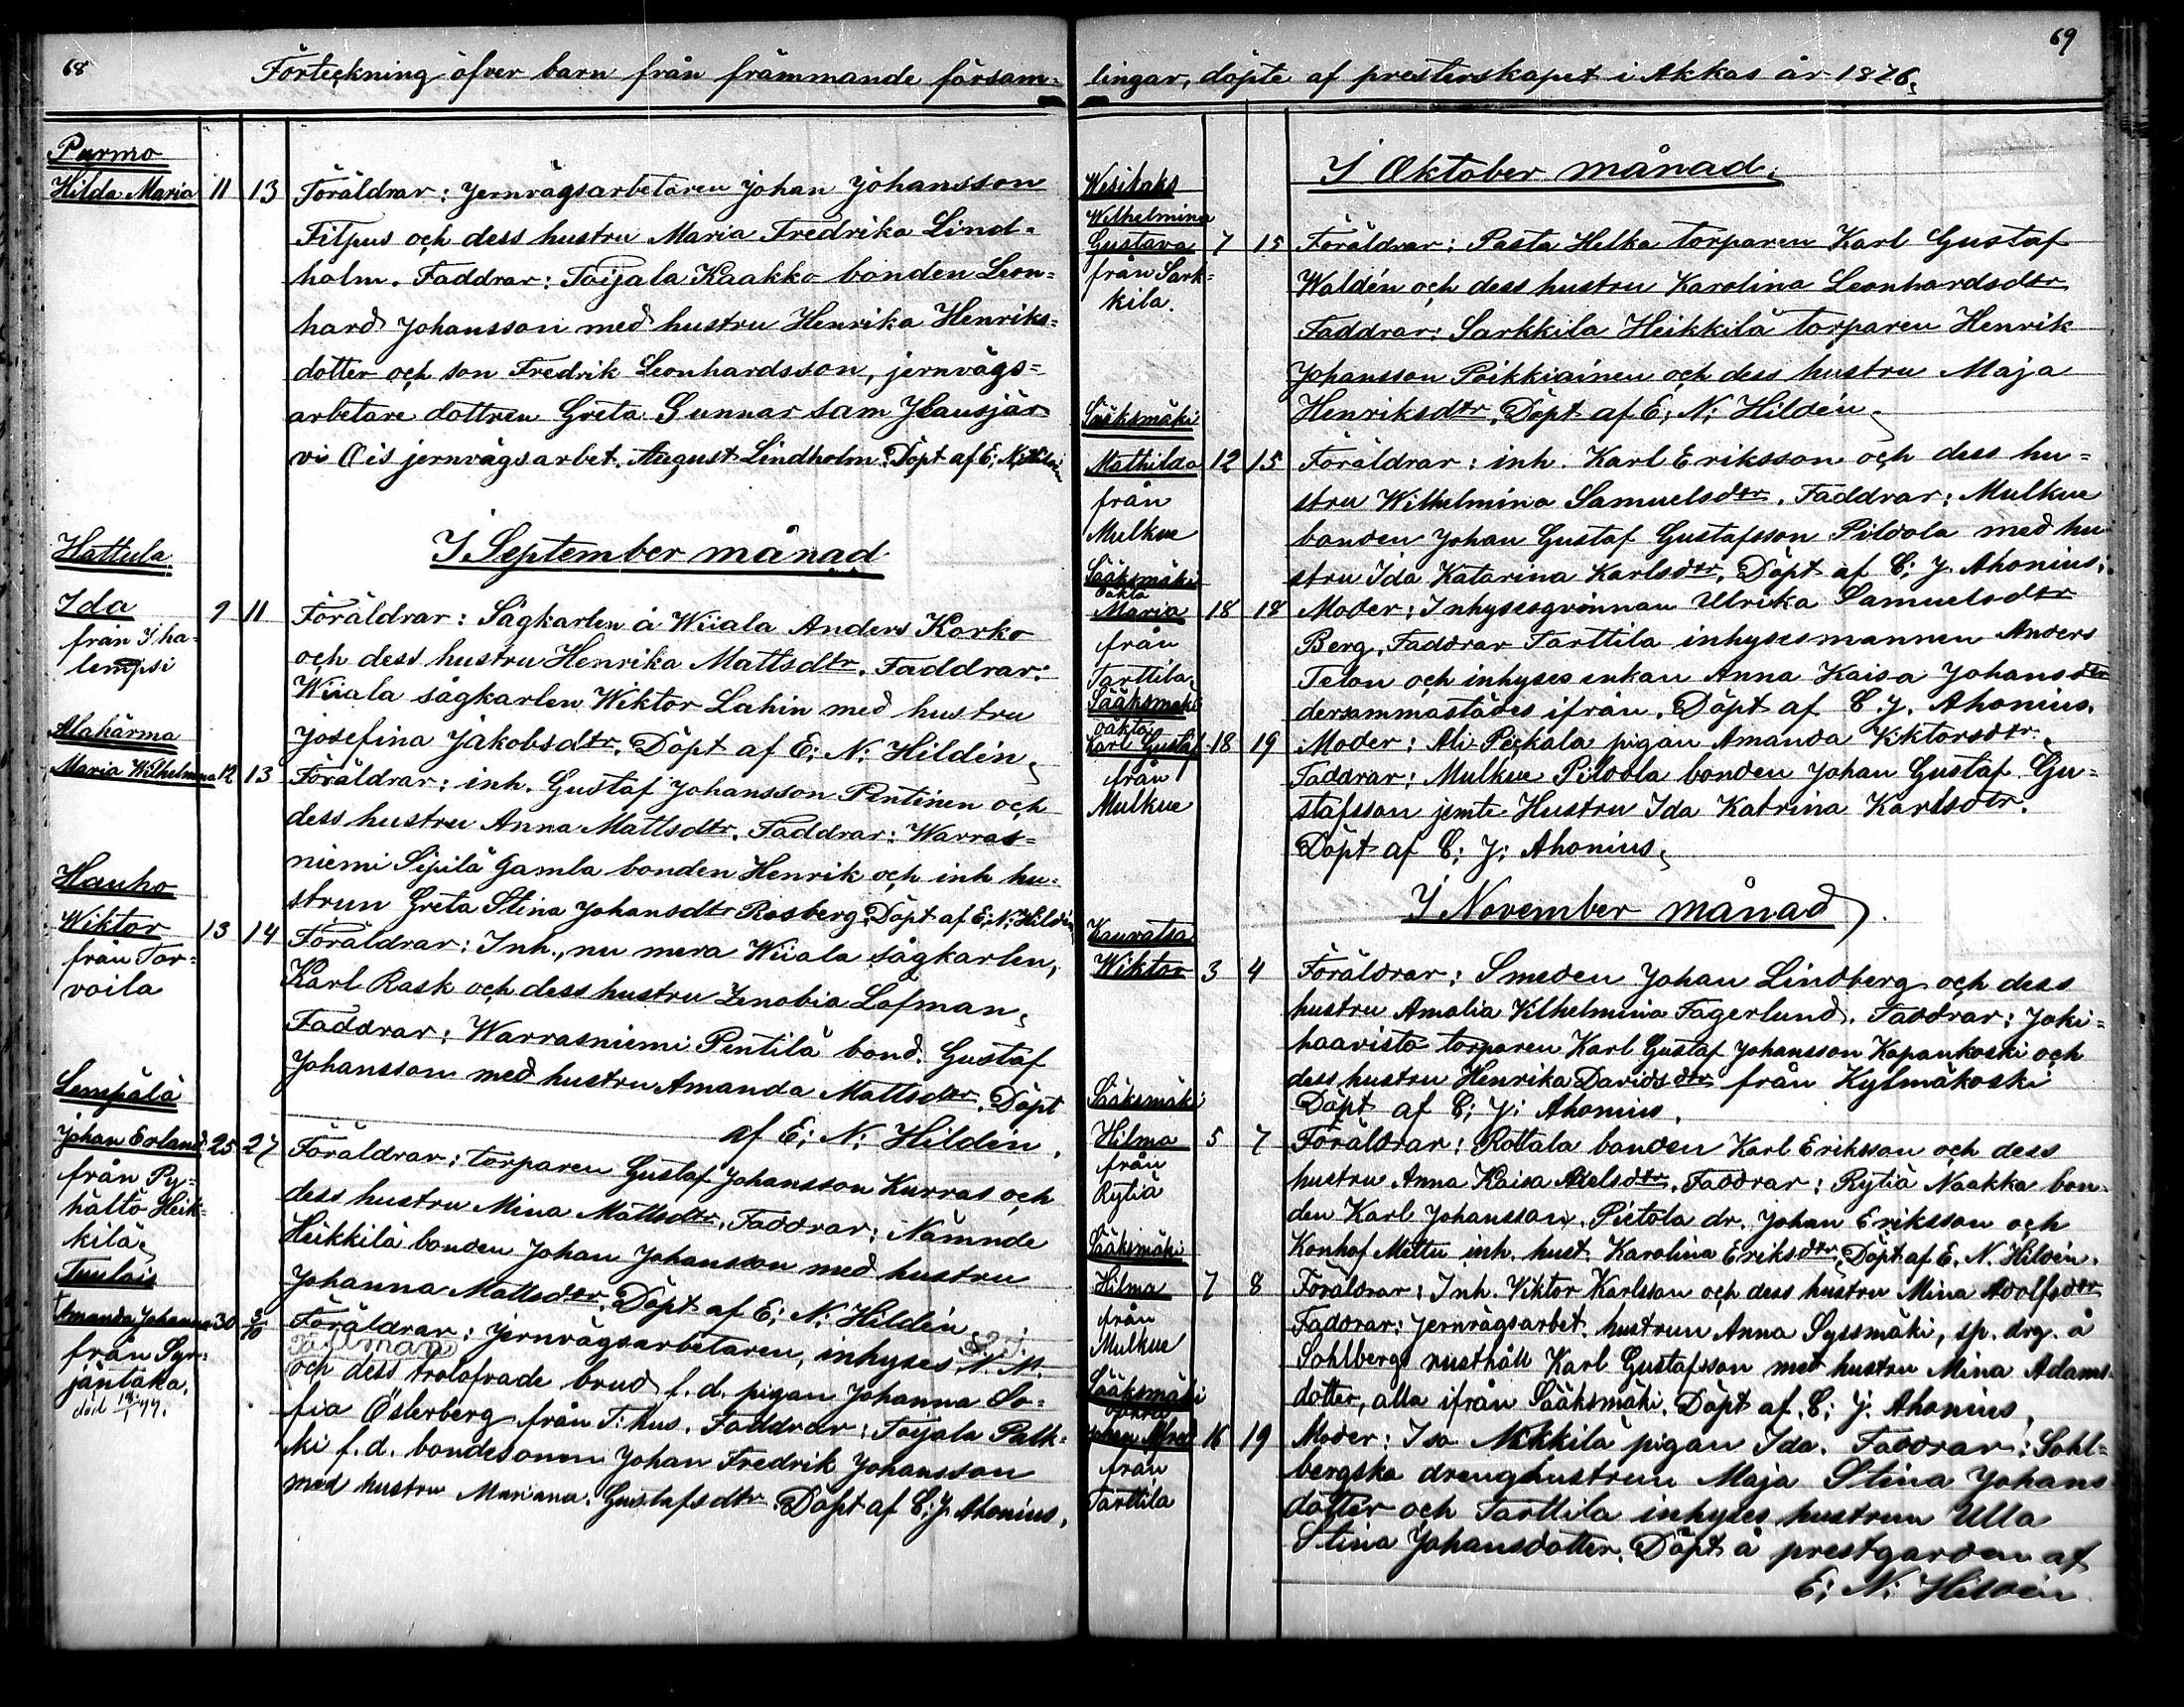 68
Förteckning öfver barn från främmande försam-
Purmo
Hilda Maria 11 13 Föräldrar: Jernvägsarbetaren Johan Johansson
Filpus och dess hustru Maria Fredrika Lind-
holm. Faddrar: Toijala Kaakko bonden Leon-
hard Johansson med hustru Henrika Henriks-
dotter och son Fredrik Leonhardsson, jernvägs-
arbetare dottren Greta Gunnar sam Hausjär-
vi Ois jernvägsarbet. August Lindholm. Döpt af E: N: Hildén
I September månad
Hattula
Ida 9 11 Föräldrar: Sågkarlen å Wiiala Anders Korko
från Iha-
lempsi
och dess hustru Henrika Mattsdtr. Faddrar:
Wiiala sågkarlen Wiktor Lahin med hustru
Josefina Jakobsdtr. Döpt af E: N: Hildén
Alahärmä
Maria Wilhelmina 12 13 Föräldrar: inh. Gustaf Johansson Pentinen och
dess hustru Anna Mattsdtr. Faddrar: Warras-
niemi Sipilä gamla bonden Henrik och inh hu-
strun Greta Stina Johansdtr Rosberg. Döpt af E: N: Hildén
Hauho
Wiktor 13 14 Föräldrar: Inh., nu mera Wiiala sågkarlen,
från Tor-
voila
Karl Rask och dess hustru Zenobia Lofman
Faddrar: Warrasniemi Pentilä bond. Gustaf
Johansson med hustru Amanda Mattsdtr. Döpt
af E: N: Hildén.
Lempälä
Johan Erland 25 27 Föräldrar: torparen Gustaf Johansson Kurras och
från Py-
hältö Heik-
kilä
dess hustru Mina Mattsdtr. Faddrar: Nämnde
Heikkilä bonden Johan Johansson med hustru
Johanna Mattsdtr. Döpt af E: N: Hildén
Tuulois
Amanda Johanna 30 5/10 Föräldrar: jernvägsarbetaren, inhyses N. N.
från Syr-
jäntaka,
död 18/1 77.
och dess trolofvade brud f. d. pigan Johanna So-
fia Österberg från T: hus. Faddrar: Toijala Palk-
ki f. d. bondesonen Johan Fredrik Johansson
med hustru Mariana Gustafsdtr. Döpt af C: J. Ahonius,
69
lingar, döpte af presterskapet i Akkas år 1876.
I Oktober månad.
Wesilaks
Wilhelmina
Gustava 7 15 Föräldrar: Pasta Helka torparen Karl Gustaf
från Sark-
kila.
Waldén och dess hustru Karolina Leonhardsdtr
Faddrar: Sarkkila Heikkilä torparen Henrik
Johansson Poikkiainen och dess hustru Maja
Henriksdtr. Döpt af E: N: Hildén
Sääksmäki
Mathilda 12 15 Föräldrar: inh. Karl Eriksson och dess hu-
från
Mulkue
stru Wilhelmina Samuelsdtr. Faddrar: Mulkue
bonden Johan Gustaf Gustafsson Pildola med hu
stru Ida Katarina Karlsdtr. Döpt af C: J. Ahonius.
Sääksmäki
oäkta
Maria 18 18 Moder: Inhysesqvinnan Ulrika Samuelsdtr
från
Tarttila
Berg. Faddrar Tarttila inhysesmannen Anders
Telon och inhyses enkan Anna Kaisa Johansdtr
dersammastädes ifrån. Döpt af C. J. Ahonius.
Sääksmäki
oäkta
Karl Gustaf 18 19 Moder: Ali Peckala pigan Amanda Viktorsdtr.
från
Mulkue
Faddrar: Mulkue Pildola bonden Johan Gustaf Gu-
stafsson jemte Hustru Ida Katrina Karlsdtr.
Döpt af C: J: Ahonius
I November månad
Kauvatsa
Wiktor 3 4 Föräldrar: Smeden Johan Lindberg och dess
hustru Amalia Vilhelmina Fagerlund. Faddrar: Joki-
haavisto torparen Karl Gustaf Johansson Kapankoski och
dess hustru Henrika Davidsdtr från Kylmäkoski
Döpt af C: J: Ahonius.
Sääksmäki
Hilma 5 7 Föräldrar: Rottala bonden Karl Eriksson och dess
från
Rytiä
hustru Anna Kaisa Axelsdtr. Faddrar: Rytiä Naakka bon-
den Karl Johansson, Pietola dr. Johan Eriksson och
Konhof Mettu inh. hust. Karolina Eriksdtr. Döpt af E. N. Hildén.
Sääksmäki
Hilma 7 8 Föräldrar: Inh. Viktor Karlsson och dess hustru Mina Adolfsdtr
från
Mulkue
Faddrar: Jernvägsarbet. hustrun Anna Syssmäki, sp. drg. å
Sohlbergs rusthåll Karl Gustafsson med hustru Mina Adams-
dotter, alla ifrån Sääksmäki. Döpt af C: J. Ahonius.
Sääksmäki
oäkta
Johan Alfred 16 19 Moder: Iso Nikkilä pigan Ida. Faddrar: Sohl-
från
Tarttila
bergska drenghustrun Maja Stina Johans
dotter och Tarttila inhyses hustrun Ulla
Stina Johansdotter. Döpt å prestgarden af
E: N: Hildén